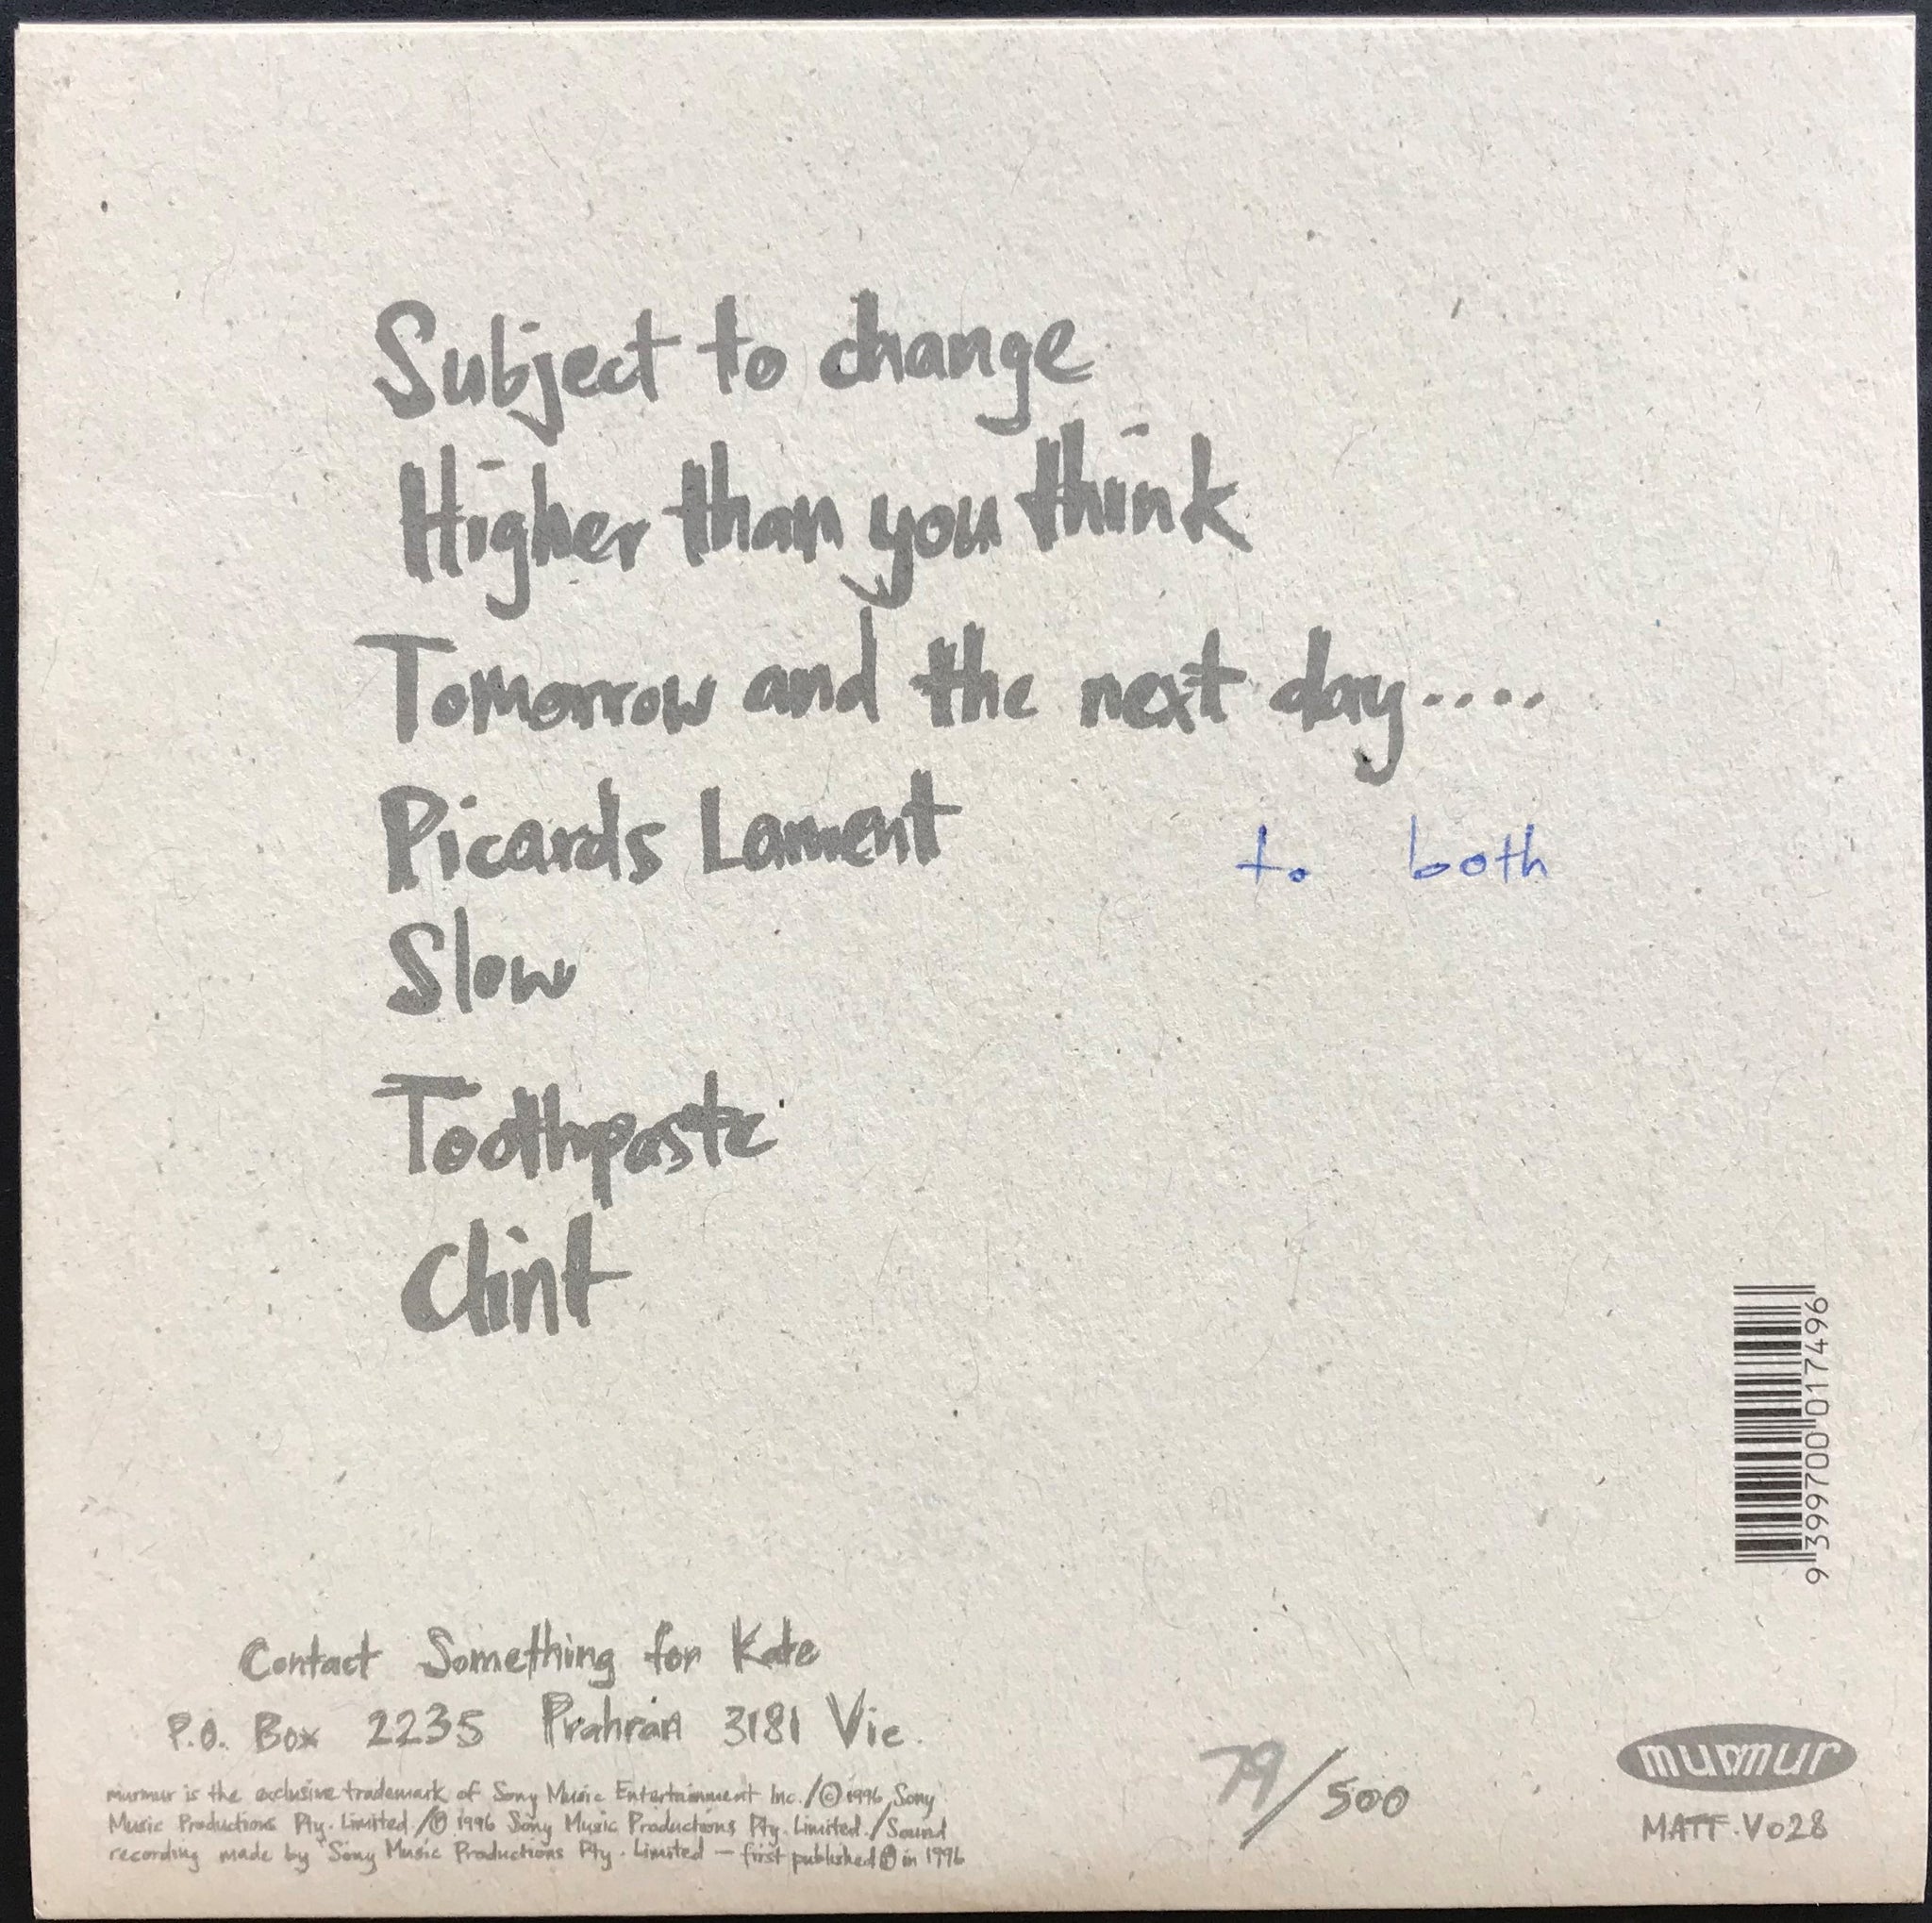 Subject to change
Higher than you think
Tomorrow and the next day....
Picards Lament
to both
Slow
Toothpaste
Clint
9399700017496
Contact Something for Kate
P.O. Box 2235 Prahran 3181 Vic.
murmur is the exclusive trademark of Sony Music Entertainment Inc./© 1996 Sony
Music Productions Pty. Limited./℗ 1996 Sony Music Productions Pty. Limited./Sound
recording made by Sony Music Productions Pty. Limited — first published ℗ in 1996
79/500
murmur
MATT.V028